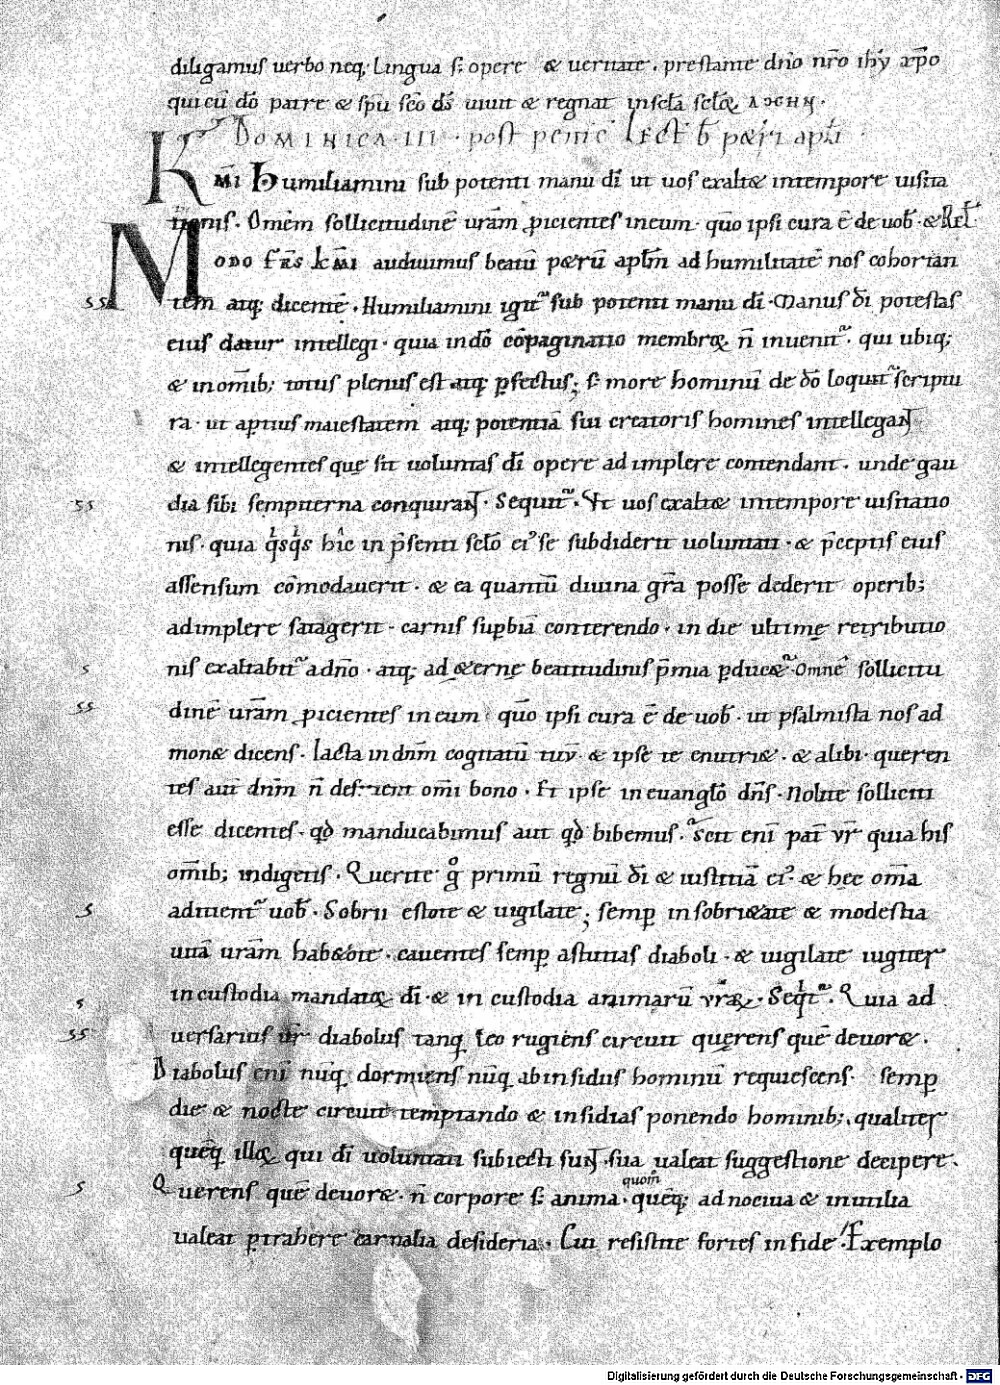 diligamus uerbo neq; lingua s; opere & ueritate. prestante dn̄o nr̄o ihū xp̄o
qui cū dō patre & sp̄u sc̄o ds̄ uiuit & regnat in sc̄la sc̄lоꝝ
DOMINICA · III · post penꞇ̄ Lect̄ b̄ pet̄ri apl̄i
KMI Humiliamini sub potenti manu dī ut uos exalt& in tempore uisita
tionis. Omēm sollicitudinē urām ꝓicientes in eum. quō ipsi cura ē de uob̄. & Rel̄
MODO FRS KMI audiuimus beatū p&rū aplm̄ ad humilitatē nos cohortan
tem atq; dicentē. Humiliamini igit᷑ sub potenti manu dī. Manus dī potestas
eius datur intellegi. quia in dō cōpaginatio membroꝝ n̄ inuenit᷑. qui ubiq;
& in om̄ib; totus plenus est atq; ꝑfectus; s; more hominū de dō loquit᷑ scriptu
ra. ut aptius maiestatem atq; potentiā sui creatoris homines intellegant
& intellegentes quę sit uoluntas dī opere adimplere contendant. unde gau
dia sibi sempiterna conquirant. Sequit᷑. Ut uos exalt& in tempore uisitatio
nis. quia q̇sq̇s hic in p̄senti sc̄lo ei᷒ se subdiderit uoluntati. & p̄ceptis eius
assensum cōmodauerit. & ea quantū diuina gr̄a posse dederit operib;
adimplere satagerit. carnis supbiā conterendo. in die ultimę retributio
nis exaltabit᷑ a dn̄o. atq; ad &ernę beatitudinis p̄mia ꝑduc&᷑. Omnē sollicitu
dinē urām ꝓicientes in eum. quō ipsi cura ē de uob̄. ut psalmista nos ad
mon& dicens. Iacta in dnm̄ cogitatū tuū. & ipse te enutri&. & alibi. queren
tes aut̄ dnm̄ n̄ deficient om̄i bono. Et ipse in euangl̄o dn̄s. Nolite solliciti
esse dicentes. qd̄ manducabimus aut qd̄ bibemus. Scit eni pat̄ vr̄ quia his
om̄ib; indigetis. Querite gͦ primū regnū dī & iustitiā ei᷒. & hęc om̄a
adicient᷑ uob̄. Sobrii estote & uigilate; semꝑ in sobri&ate & modestia
uitā urām hab&ote. cauentes semꝑ astutias diaboli. & uigilate iugiter
in custodia mandatoꝝ dī. & in custodia animarū vr̄aꝝ. Seqit᷑. Quia ad
uersarius ur̄ diabolus tanq̄ leo rugiens circuit querens quē deuor&.
Diabolus eni nūq̄ dormiens nūq̄ ab insidiis hominū requiescens. semꝑ
die & nocte circuit temptando & insidias ponendo hominib; qualiter
quēq; illoꝝ qui dī uoluntati subiecti sunt sua ualeat suggestione decipere.
Querens quē deuor&. n̄ corpore s; anima. quom̄ quēq; ad nociua & inutilia
ualeat ꝑtrahere carnalia desideria. Cui resistite fortes in fide. Exemplo
ss
ss
s
ss
s
s
ss
s
Digitalisierung gefördert durch die Deutsche Forschungsgemeinschaft - DFG